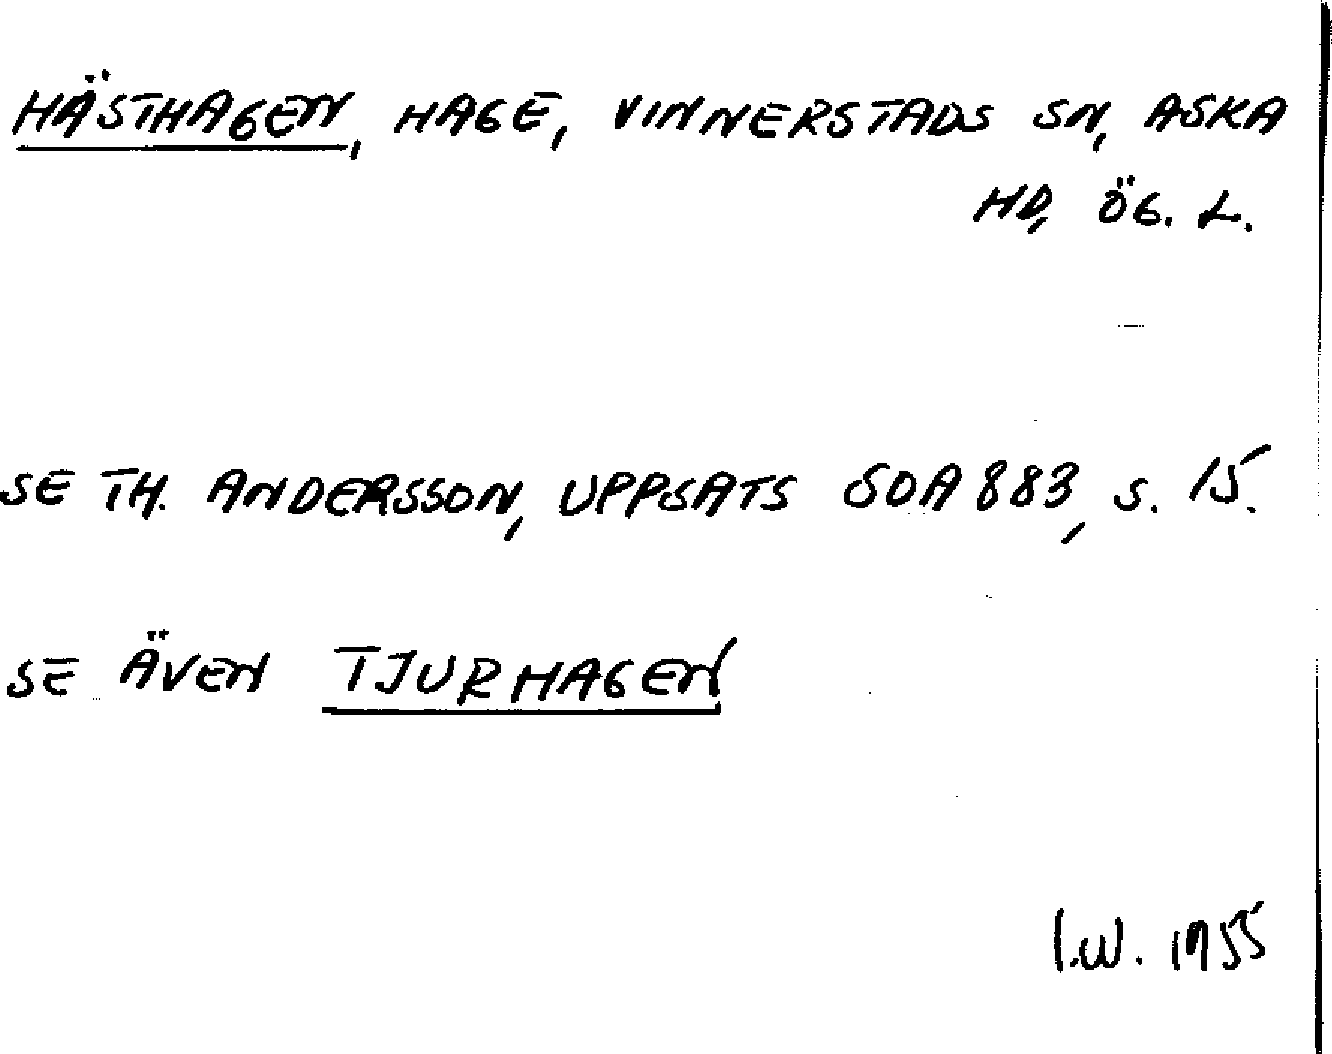 HÄSTHAGEN, HAGE, VINNERSTADS SN, ASKA
HD, ÖG. L.
SE TH. ANDERSSON, UPPSATS SOA 883, S. 15.
SE ÄVEN TJURHAGEN
I.W. 1955